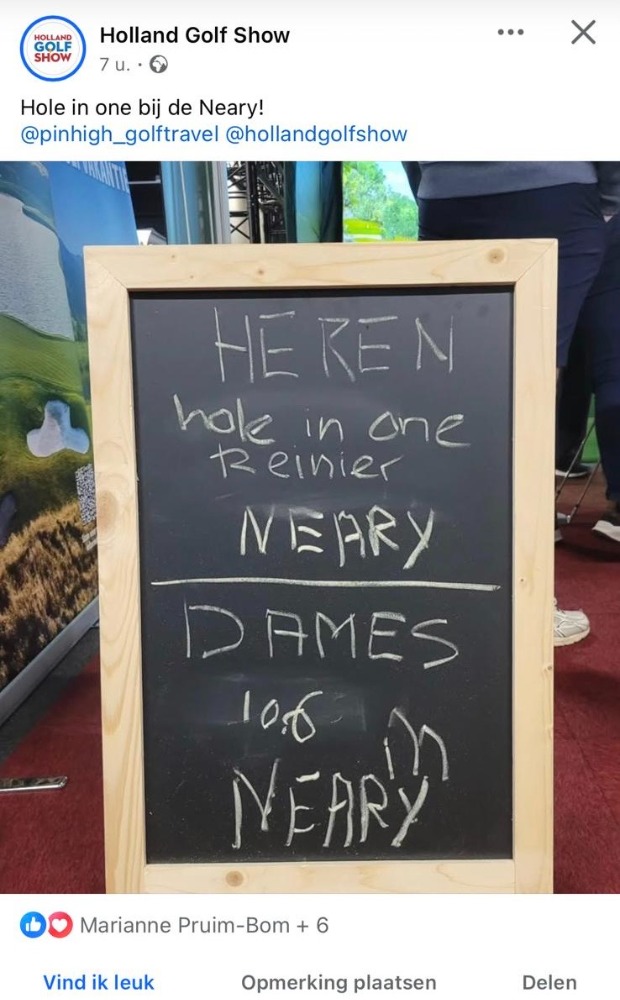 HOLLAND
GOLF
SHOW
Holland Golf Show
7 u. ·
Hole in one bij de Neary!
@pinhigh_golftravel @hollandgolfshow
HEREN
hole in one
Reinier
NEARY
DAMES
10.6 m
NEARY
Marianne Pruim-Bom + 6
Vind ik leuk
Opmerking plaatsen
Delen